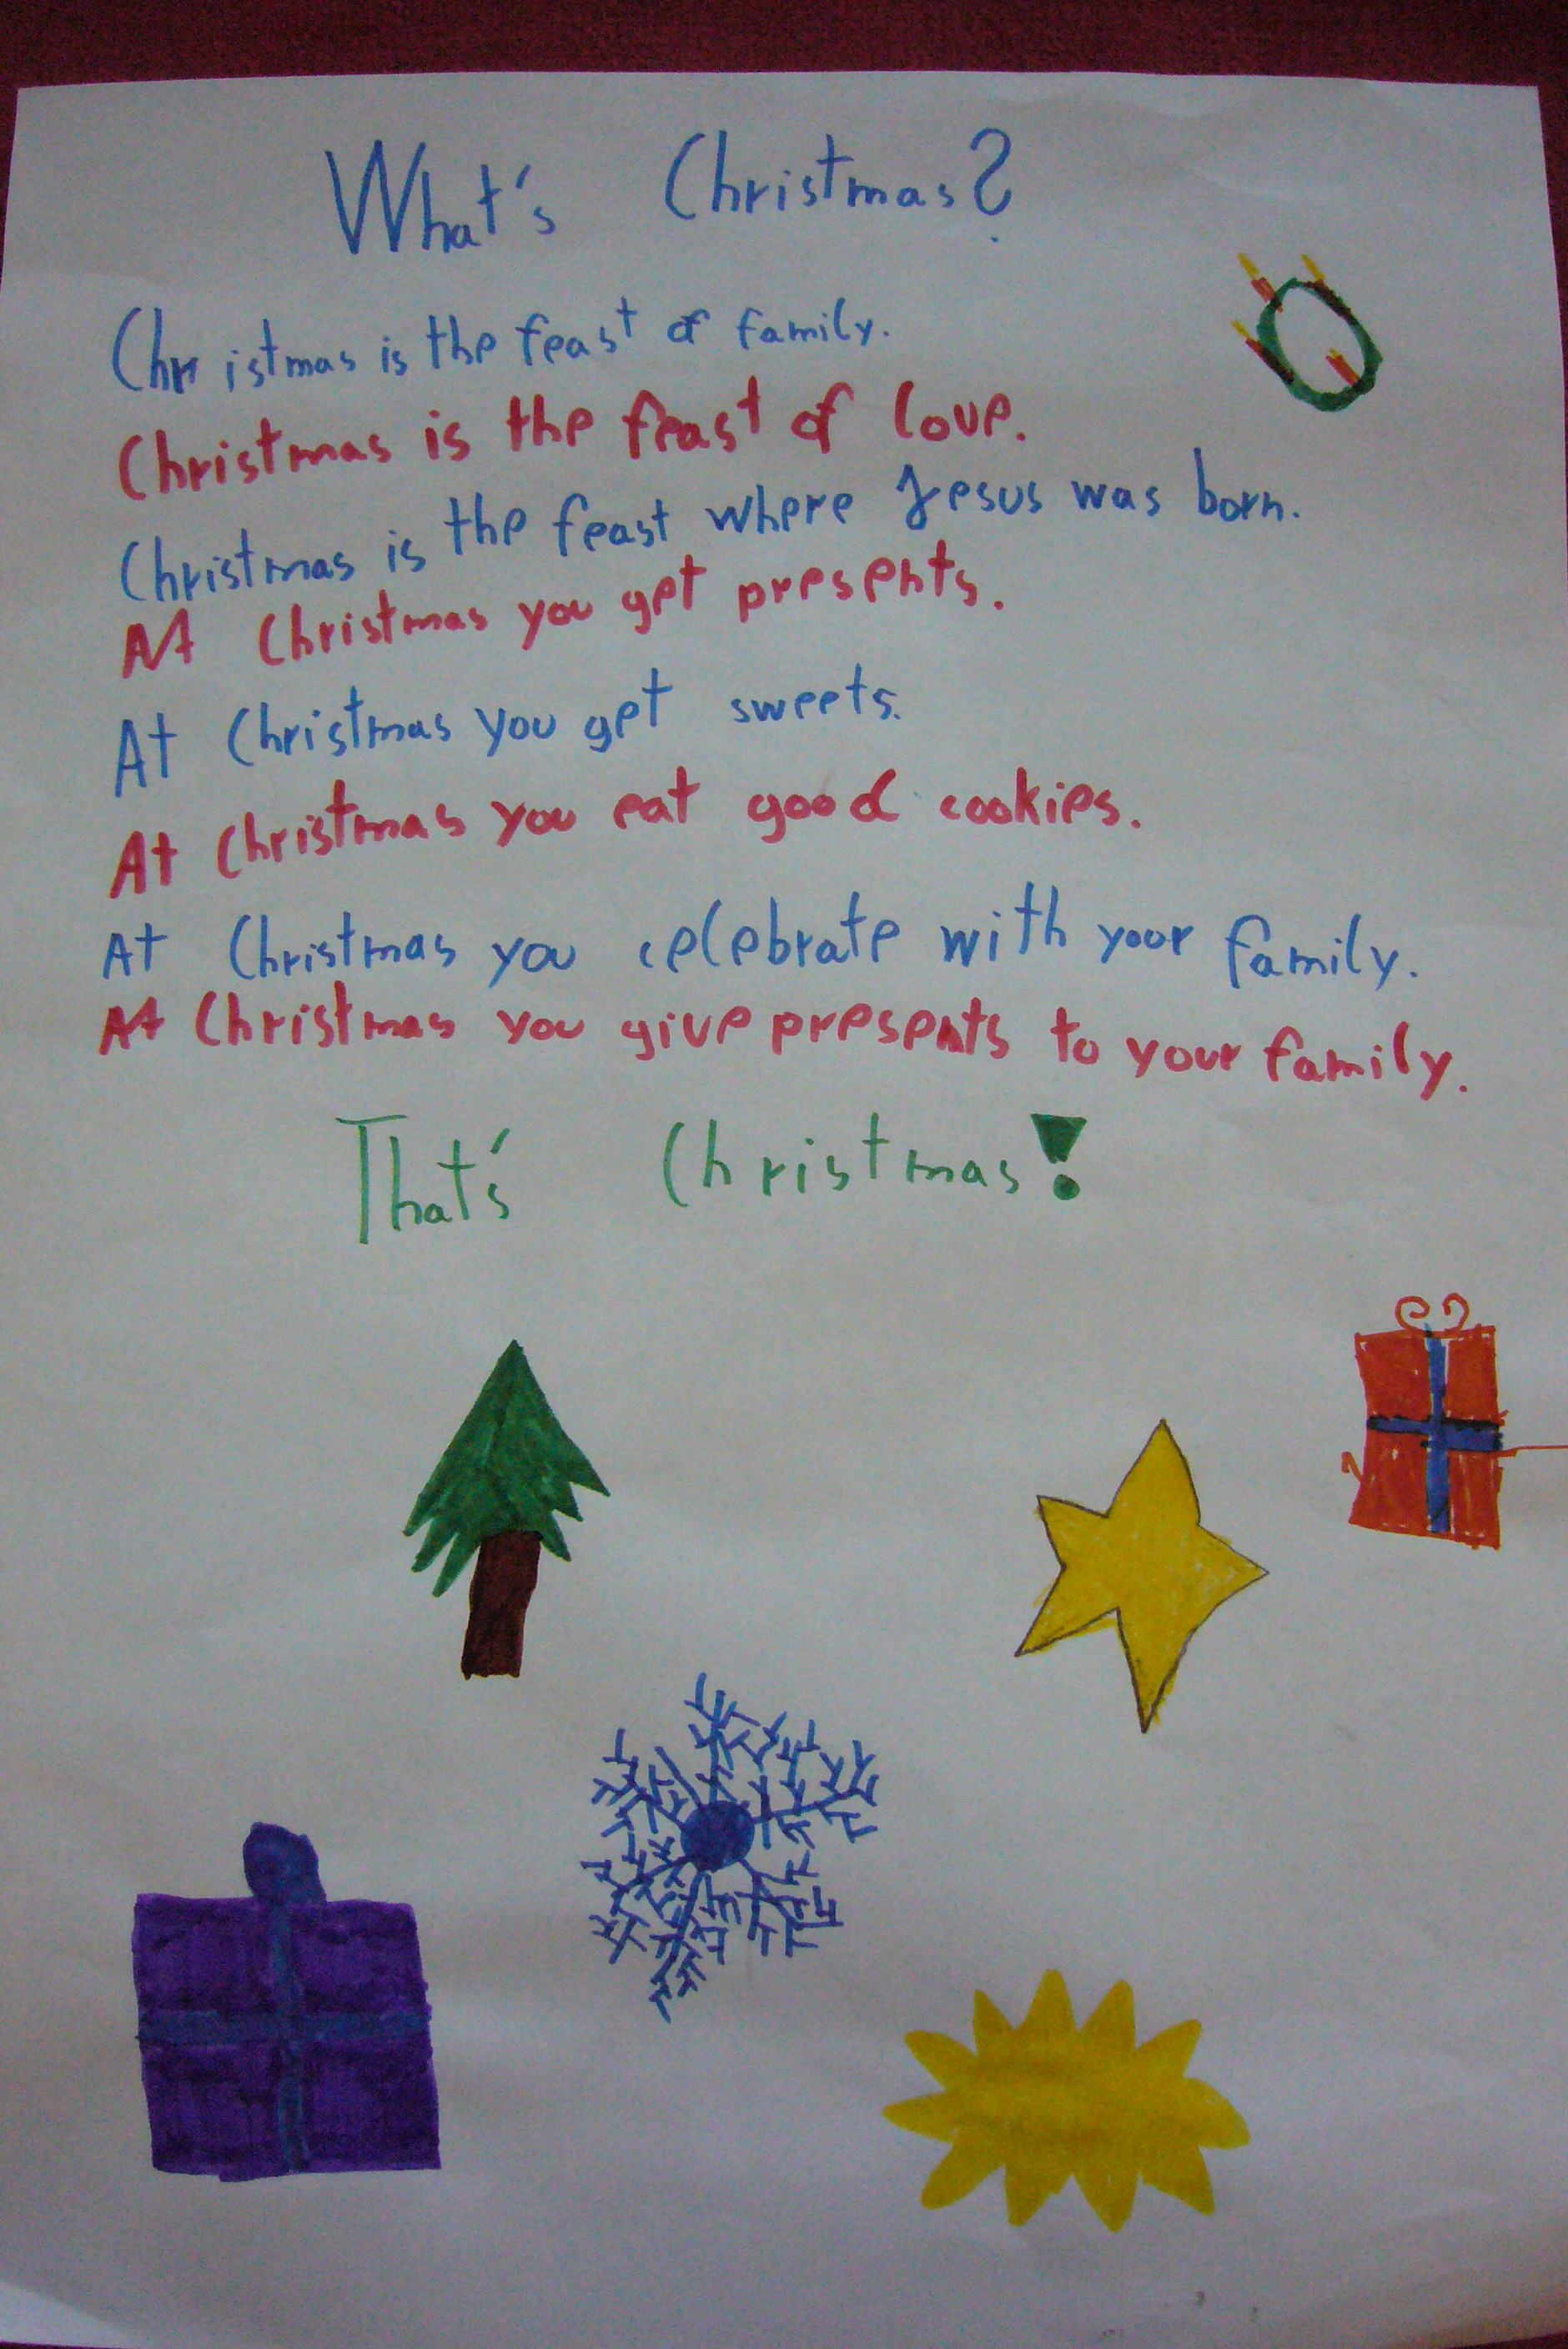 What's Christmas?
Christmas is the feast of family.
Christmas is the feast of love.
Christmas is the feast where Jesus was born.
At Christmas you get presents.
At Christmas you get sweets.
At Christmas you eat good cookies.
At Christmas you celebrate with your family.
At Christmas you give presents to your family.
That's Christmas!